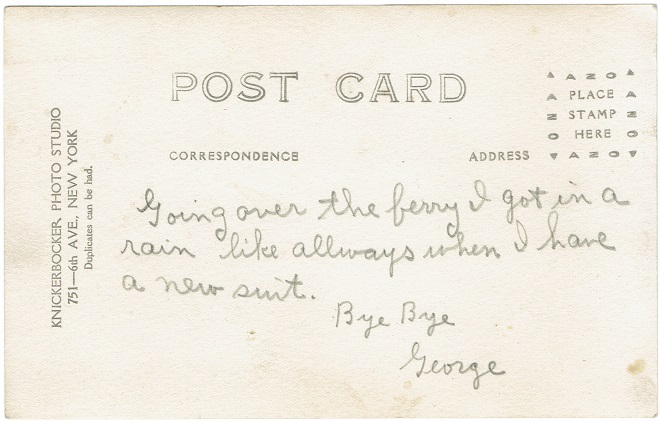 POST CARD
▲ AZO ▲
A PLACE A
Z STAMP Z
O HERE O
▼ AZO ▼
CORRESPONDENCE ADDRESS
KNICKERBOCKER PHOTO STUDIO
751—6th AVE., NEW YORK
Duplicates can be had.
Going over the ferry I got in a
rain like allways when I have
a new suit.
Bye Bye
George